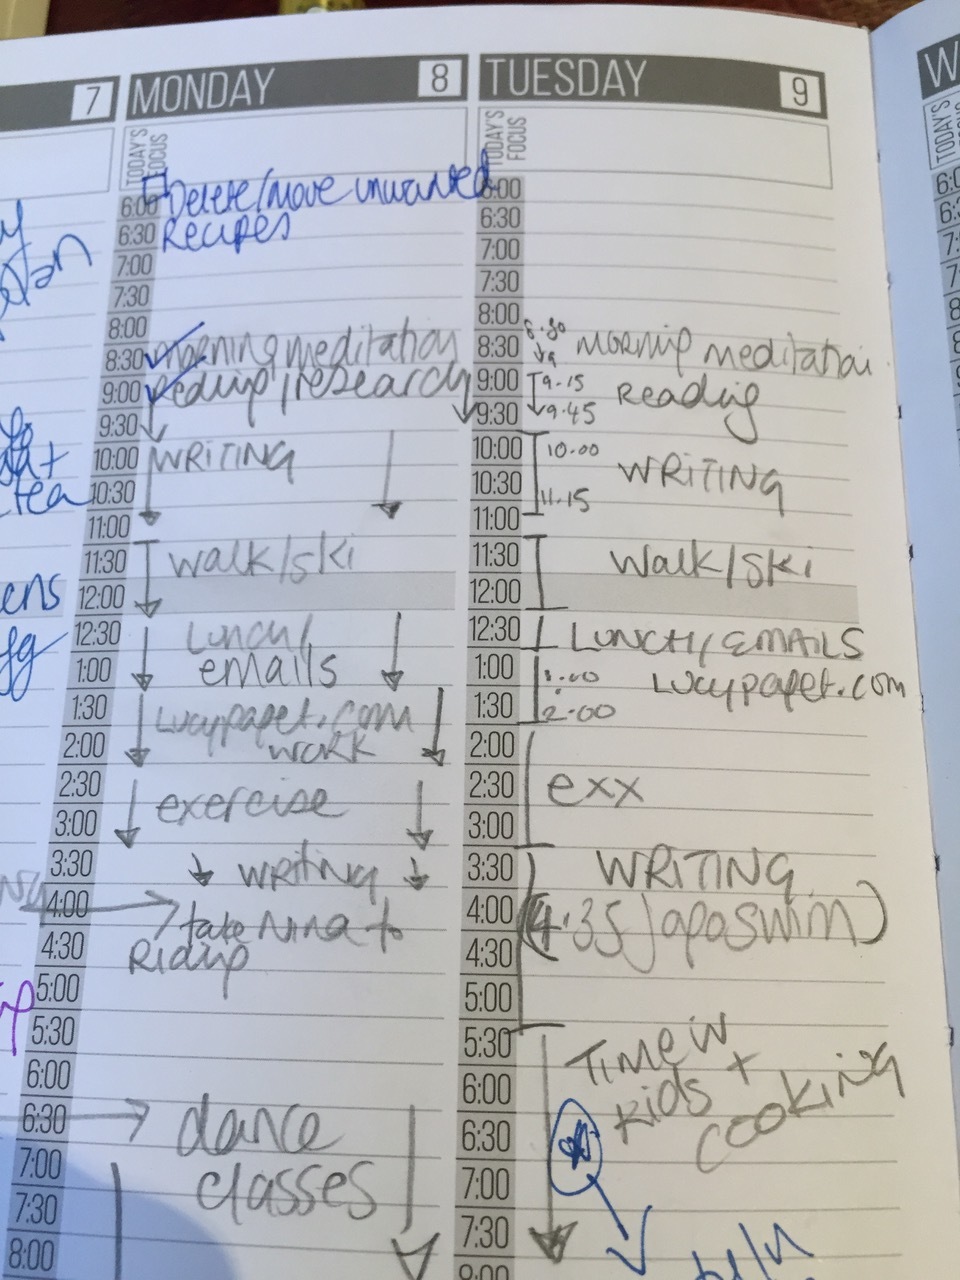 7
MONDAY 8
TODAY'S FOCUS
Delete/move unwanted
Recipes
6:00
6:30
7:00
7:30
8:00
8:30 morning meditation
9:00 Reading/research
9:30
10:00 WRITING
10:30
11:00
11:30 walk/ski
12:00
12:30 Lunch/
1:00 emails
1:30 Lucypaget.com
2:00 work
2:30 exercise
3:00
3:30 writing
4:00 take Nina to
4:30 Riding
5:00
5:30
6:00
6:30 dance
7:00 classes
7:30
8:00
TUESDAY 9
TODAY'S FOCUS
6:00
6:30
7:00
7:30
8:00
8:30 8.30 9 MORNING meditation
9:00 9.15 Reading
9:30 9.45
10:00 10.00 WRITING
10:30 11.15
11:00
11:30 Walk/Ski
12:00
12:30 LUNCH/EMAILS
1:00 1.00 Lucypaget.com
1:30 2.00
2:00
2:30 exx
3:00
3:30 WRITING
4:00 (4.35) apaswim)
4:30
5:00
5:30 TIME W
6:00 Kids + COOKING
6:30
7:00
7:30
8:00
W
TODAY'S
tea
ens